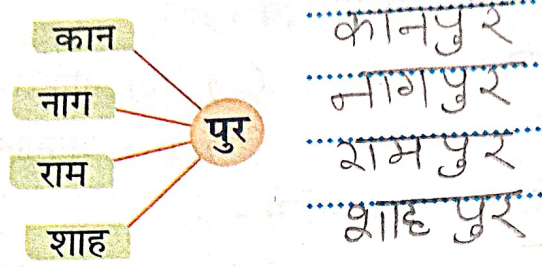 कान
नाग
राम
शाह
पुर
कानपुर
नागपुर
रामपुर
शाहपुर